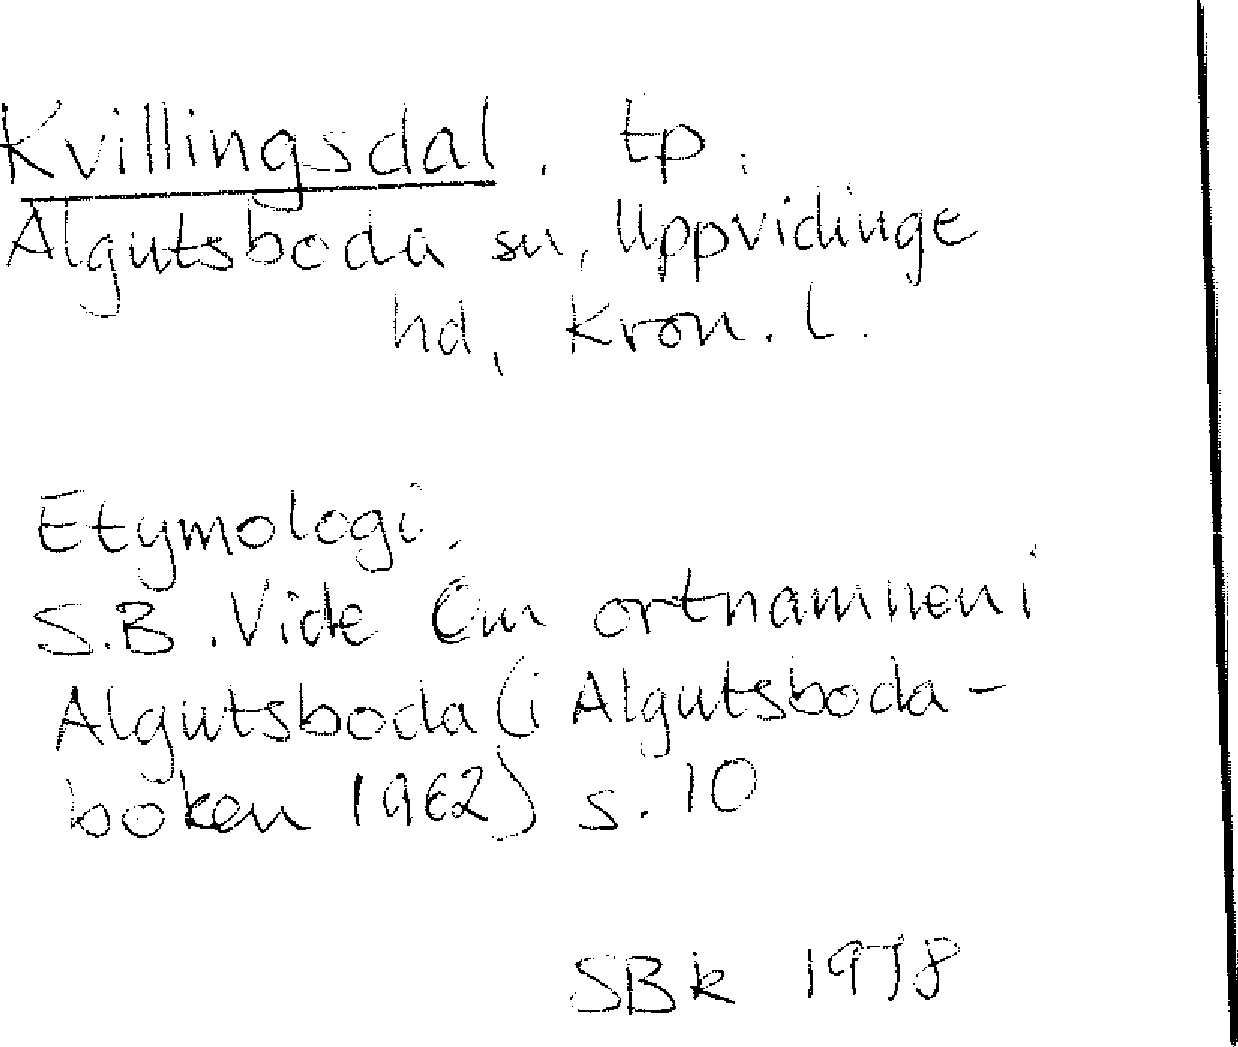 Kvillingsdal, tp.
Algutsboda sn, Uppvidinge
hd, Kron. l.
Etymologi.
S.B. Vide Om ortnamnen i
Algutsboda (i Algutsboda-
boken 1962) s. 10
SBk 1978